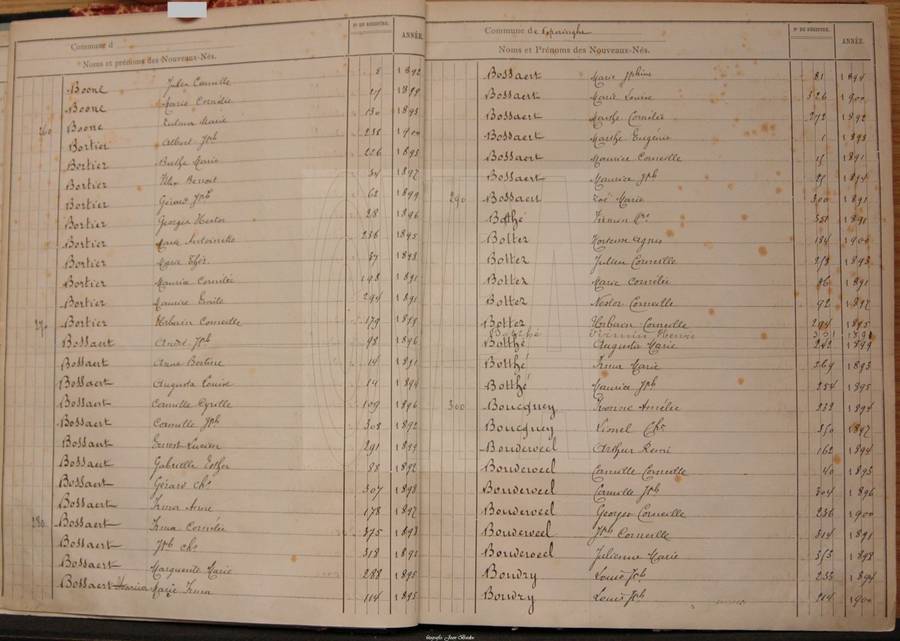 Commune d
Nº DU REGISTRE.
ANNÉE.
Noms et prénoms des Nouveaux-Nés.
Boone Jules Camille 8 1892
Boone Marie Cornélie 1899
260 Boone Marie 130 1893
Bortier Albert Jph 238 1900
Bortier Berthe Marie 226 1895
Bortier Benoit 34 1897
Bortier Gérard Jph 62 1899
Bortier Georges Hector 28 1896
Bortier Marie Antoinette 236 1895
Bortier Marie 37 1893
Bortier Maurice Cornélie 1891
Bortier Maurice Emile 294 1891
270 Bortier Urbain Corneille 179 1899
Bossaert André Jph 48 1896
Bossaert Anne Bertine 14 1891
Bossaert Augusta Louise 14 1894
Bossaert Camille Cyrille 109 1896
Bossaert Camille Jph 308 1892
Bossaert Ernest Lucien 291 1899
Bossaert Gabrielle Esther 88 1892
Bossaert Gérard Chs 307 1898
Bossaert Irma Anne 178 1897
280 Bossaert Irma Cornélie 375 1893
Bossaert Jph Chs 318 1892
Bossaert Marguerite Marie 288 1895
Bossaert Marie Irma 114 1895
Commune de
Nº DU REGISTRE.
ANNÉE.
Noms et Prénoms des Nouveaux-Nés.
Bossaert Marie Jphine 81 1894
Bossaert Marie Louise 326 1900
Bossaert Marthe Cornélie 272 1892
Bossaert Marthe Eugénie 1 1893
Bossaert Maurice Corneille 1891
Bossaert Maurice Jph 1894
290 Bossaert Zoé Marie 300 1891
Botthé Firmin 351 1891
Botter Hortense Agnes 134 1900
Botter Julien Corneille 1893
Botter Marie Cornélie 86 1891
Botter Nestor Corneille 92 1897
Botter Urbain Corneille 294 1895
Botthé Augusta Marie 242 1899
Botthé Irma Marie 269 1893
Botthé Maurice Jph 254 1895
300 Boucquey Yvonne Amélie 233 1894
Boucquey Lionel Chs 350 1897
Bouderweel Arthur Remi 162 1894
Bouderweel Camille Corneille 40 1893
Bouderweel Camille Jph 304 1896
Bouderweel Georges Corneille 236 1900
Bouderweel Jph Corneille 314 1891
Bouderweel Julienne Marie 1898
Boudry Louis Jph 233 1894
Boudry Louis Jph 214 1900